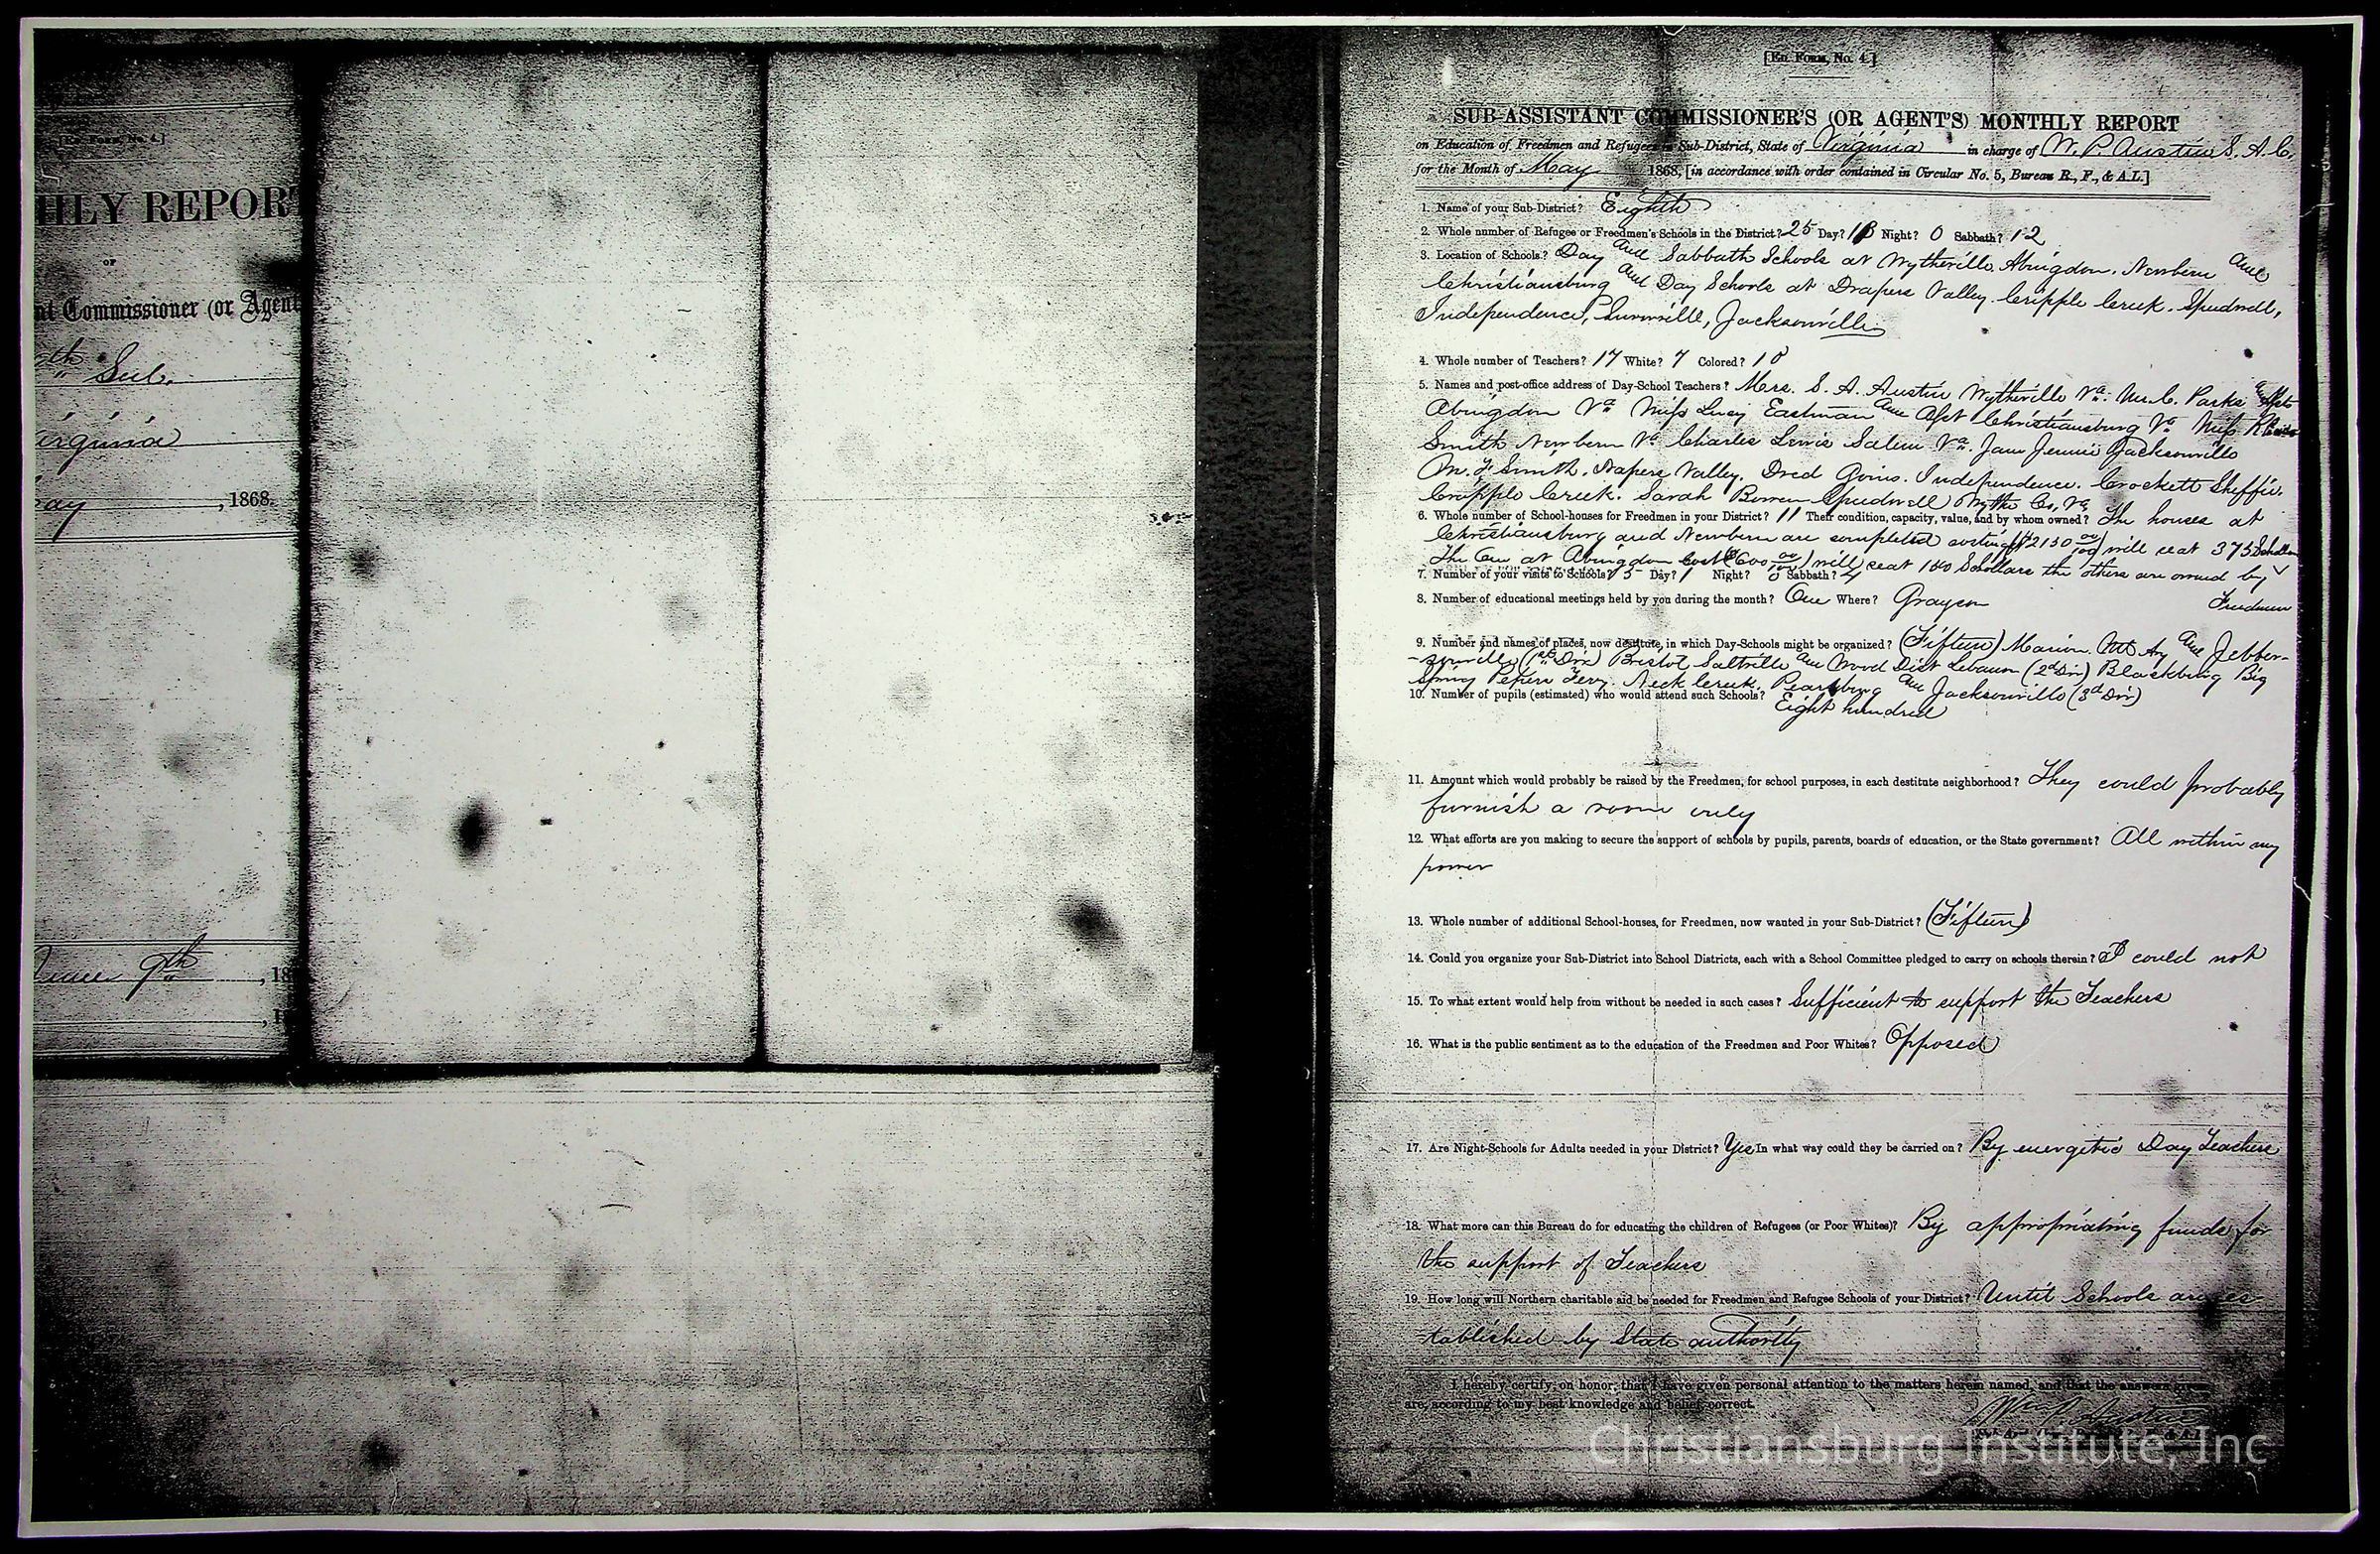 [Ed. Form, No. 4.]
HLY REPORT
or
nt Commissioner (or Agent
8th Sub.
irginia
ay , 1868.
June 9th , 18
[Ed. Form, No. 4.]
SUB-ASSISTANT COMMISSIONER'S (OR AGENT'S) MONTHLY REPORT
on Education of Freedmen and Refugees in Sub-District, State of Virginia in charge of W. P. Austin S. A. C.
for the Month of May 1868, [in accordance with order contained in Circular No. 5, Bureau R., F., & A.L.]
1. Name of your Sub-District? Eighth
2. Whole number of Refugee or Freedmen's Schools in the District? 25 Day? 13 Night? 0 Sabbath? 12
3. Location of Schools? Day and Sabbath Schools at Wytheville, Abingdon, Newbern and
Christiansburg and Day Schools at Drapers Valley, Cripple Creek, Speedwell,
Independence, Jacksonville
4. Whole number of Teachers? 17 White? 7 Colored? 10
5. Names and post-office address of Day-School Teachers? Mrs. S. A. Austin Wytheville Va. Parks and Asst
Abingdon Va Miss Lucy Eastman and Asst Christiansburg Va Miss
Smith Newbern Va Charles Lewis Salem Va. Jane Jennie Jacksonville
Smith. Drapers Valley. Dred Goins. Independence. Crockett
Cripple Creek. Sarah Bowen Speedwell Wythe Co, Va
6. Whole number of School-houses for Freedmen in your District? 11 Their condition, capacity, value, and by whom owned? The houses at
Christiansburg and Newbern are completed costing ($2150 00/100) will seat 375 Schollars
The One at Abingdon Cost ($600 00/100) will seat 140 Schollars the others are owned by
Freedmen
7. Number of your visits to Schools? 5 Day? 1 Night? 0 Sabbath? 4
8. Number of educational meetings held by you during the month? One Where? Grayson
9. Number and names of places, now destitute, in which Day-Schools might be organized? (Fifteen) Marion. Mt Ary and Jeffer-
-sonville (1st Div) Bristol Saltville and Wood Dist Lebanon (2d Div) Blacksburg Big
Spring Pepers Fery. Neck Creek, Pearisburg and Jacksonville (3d Div)
10. Number of pupils (estimated) who would attend such Schools?
Eight hundred
11. Amount which would probably be raised by the Freedmen, for school purposes, in each destitute neighborhood? They could probably
furnish a room only
12. What efforts are you making to secure the support of schools by pupils, parents, boards of education, or the State government? All within my
power
13. Whole number of additional School-houses, for Freedmen, now wanted in your Sub-District? (Fifteen)
14. Could you organize your Sub-District into School Districts, each with a School Committee pledged to carry on schools therein? I could not
15. To what extent would help from without be needed in such cases? Sufficient to support the Teachers
16. What is the public sentiment as to the education of the Freedmen and Poor Whites? Opposed
17. Are Night-Schools for Adults needed in your District? Yes In what way could they be carried on? By energetic Day Teachers
18. What more can this Bureau do for educating the children of Refugees (or Poor Whites)? By appropriating funds for
the support of Teachers
19. How long will Northern charitable aid be needed for Freedmen and Refugee Schools of your District? Until Schools are es-
-tablished by State authority
I hereby certify, on honor, that I have given personal attention to the matters herein named, and that the answers given
are, according to my best knowledge and belief, correct.
Wm. P. Austin
Christiansburg Institute, Inc